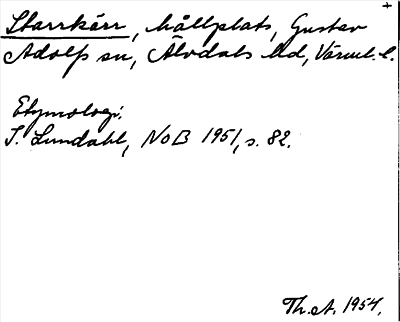 +
Starrkärr, hållplats, Gustav
Adolfs sn, Älvdals hd, Värml. l.
Etymologi.
I. Lundahl, NoB 1951, s. 82.
Th. A. 1954.